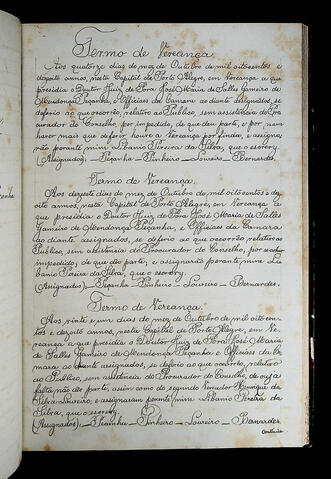 Termo de Vereança.
Aos quatorze dias do mez de Outubro de mil oitocentos e
dezoito annos, nesta Capital de Porto Alegre, em Vereança a que
presidio o Doutor Juiz de Fora José Maria de Salles Gameiro de
Mendonça Peçanha, e Officiaes da Camara ao diante assignados, se
deferio ao que occorreo, relativo ao Publico, sem assistencia do Pro-
curador do Conselho, por impedido, de que deu parte, e por nem
haver mais que deferir houve a Vereança por finda, e assigna-
rão perante mim Libanio Pereira da Silva, que o escrevy.
(Assignados) – Peçanha – Pinheiro – Loureiro – Bernardes.
Termo de Vereança.
Aos dezesete dias do mez de Outubro de mil oitocentos e de-
zoito annos, nesta Capital de Porto Alegre, em Vereança a
que presidio o Doutor Juiz de Fora José Maria de Salles
Gameiro de Mendonça Peçanha, e Officiaes da Camara
ao diante assignados, se deferio ao que occorreo, relativo ao
Publico, sem assistencia do Procurador do Conselho, por
impedido, de que deo parte; e assignarão perante mim Li-
banio Pereira da Silva, que o escrevy.
(Assignados) – Peçanha – Pinheiro – Loureiro – Bernardes.
Termo de Vereança.
Aos vinte e um dias do mez de Outubro de mil oitocen-
tos e dezoito annos, nesta Capital de Porto Alegre, em Ve-
reança a que presidio o Doutor Juiz de Fora José Maria
de Salles Gameiro de Mendonça Peçanha e Officiaes da Ca-
mara ao diante assignados, se deferio ao que occorreo, relativo
ao Publico, sem assistencia do Procurador do Conselho, de cuja
falta não deo parte, assim como do segundo Vereador Henrique da
Silva Loureiro; e assignaram perante mim Libanio Pereira da
Silva, que o escrevy.
(Assignados) – Peçanha – Pinheiro – Loureiro – Bernardes.